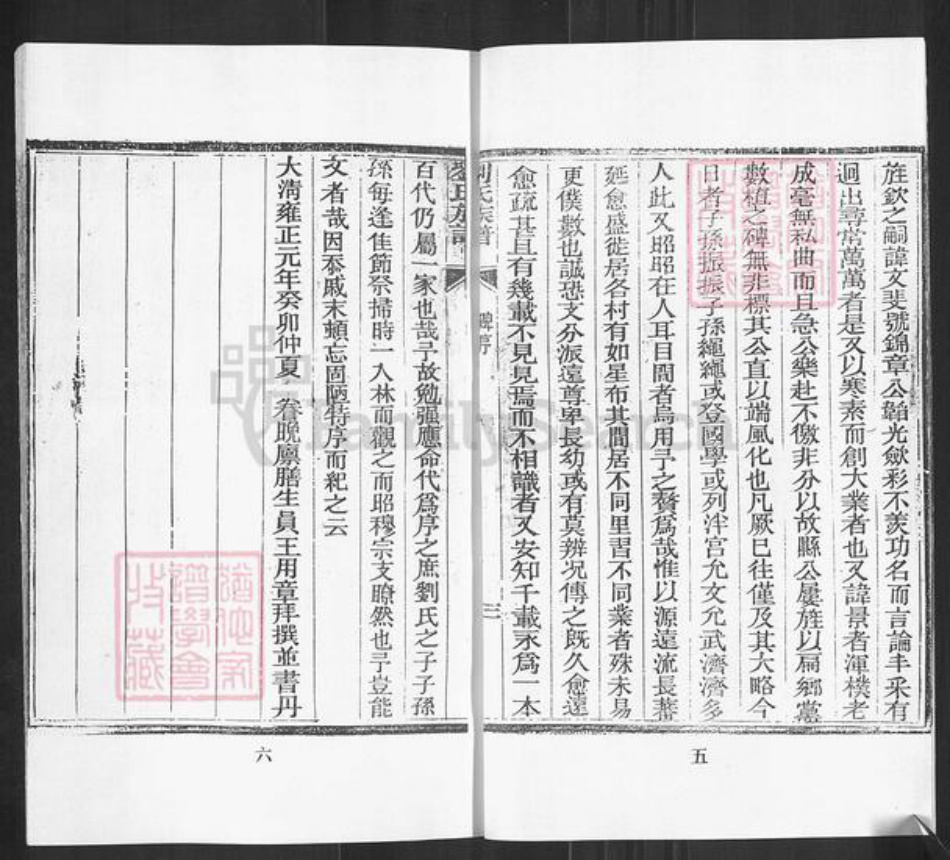 旌欽之嗣諱文斐號錦章公韜光歛彩不羨功名而言論丰采有
迥出尋常萬萬者是又以寒素而創大業者也又諱景者渾樸老
成毫無私曲而且急公樂赴不儌非分以故縣公屢旌以扁鄉黨
數植之碑無非標其公直以端風化也凡厥巳往僅及其大略今
日者子孫振振子孫繩繩或登國學或列泮宮允文允武濟濟多
人此又昭昭在人耳目間者烏用予之贅爲哉惟以源遠流長蕃
延愈盛徙居各村有如星布其間居不同里習不同業者殊未易
更僕數也誠恐支分派遠尊卑長幼或有莫辨况傳之既久愈遠
愈疏甚且有幾載不見見焉而不相識者又安知千載永爲一本
劉氏族譜
碑序
三
百代仍屬一家也哉予故勉强應命代爲序之庶劉氏之子子孫
孫每逢佳節祭掃時一入林而觀之而昭穆宗支瞭然也予豈能
文者哉因忝戚末頓忘固陋特序而紀之云
大淸雍正元年癸卯仲夏 眷晚廩膳生員王用章拜撰並書丹
五
六
FamilySearch
譜學會
收藏